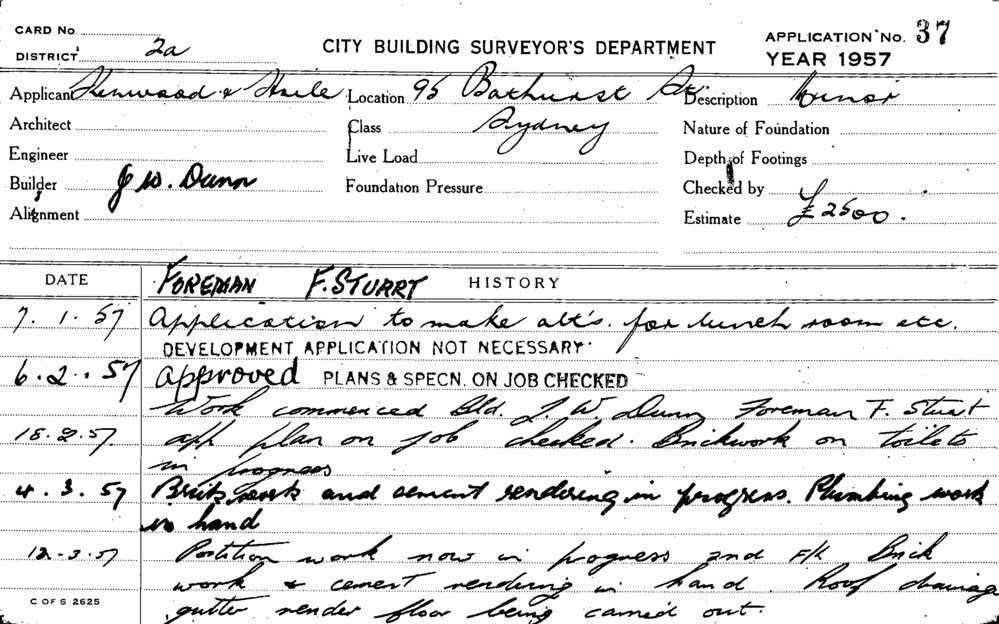 CARD No.
DISTRICT 2a
CITY BUILDING SURVEYOR'S DEPARTMENT
APPLICATION No. 37
YEAR 1957
Applicant Henwood & Haile Location 95 Bathurst St. Description Minor
Architect Class Sydney Nature of Foundation
Engineer Live Load Depth of Footings
Builder J W. Dunn Foundation Pressure Checked by
Alignment Estimate £2500.
DATE FOREMAN F. STUART HISTORY
7. 1. 57 Application to make alt's. for lunch room etc.
DEVELOPMENT APPLICATION NOT NECESSARY
6. 2. 57 approved PLANS & SPECN. ON JOB CHECKED
Work commenced Bld. J. W. Dunn Foreman F. Stuart
18. 2. 57. app plan on job checked. Brickwork on toilets
in progress
4. 3. 57 Brickwork and cement rendering in progress. Plumbing work
in hand
12-3-57 Partition work now in progress and F/R Brick
work & cement rendering in hand. Roof drainage
gutter render floor being carried out.
C OF S 2625